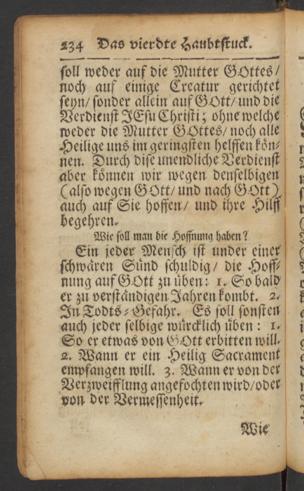 234 Das vierdte Haubtstuck.
soll weder auf die Mutter GOttes/
noch auf einige Creatur gerichtet
seyn/ sonder allein auf GOtt/ und die
Verdienst JEsu Christi; ohne welche
weder die Mutter GOttes/ noch alle
Heilige uns im geringsten helffen kön-
nen. Durch dise unendliche Verdienst
aber können wir wegen denselbigen
(also wegen GOtt/ und nach GOtt)
auch auf Sie hoffen/ und ihre Hilff
begehren.
Wie soll man die Hoffnung haben?
Ein jeder Mensch ist under einer
schwären Sünd schuldig/ die Hoff-
nung auf GOtt zu üben: 1. So bald
er zu verständigen Jahren kombt. 2.
In Todts-Gefahr. Es soll sonsten
auch jeder selbige würcklich üben: 1.
So er etwas von GOtt erbitten will.
2. Wann er ein Heilig Sacrament
empfangen will. 3. Wann er von der
Verzweifflung angefochten wird/ oder
von der Vermessenheit.
Wie